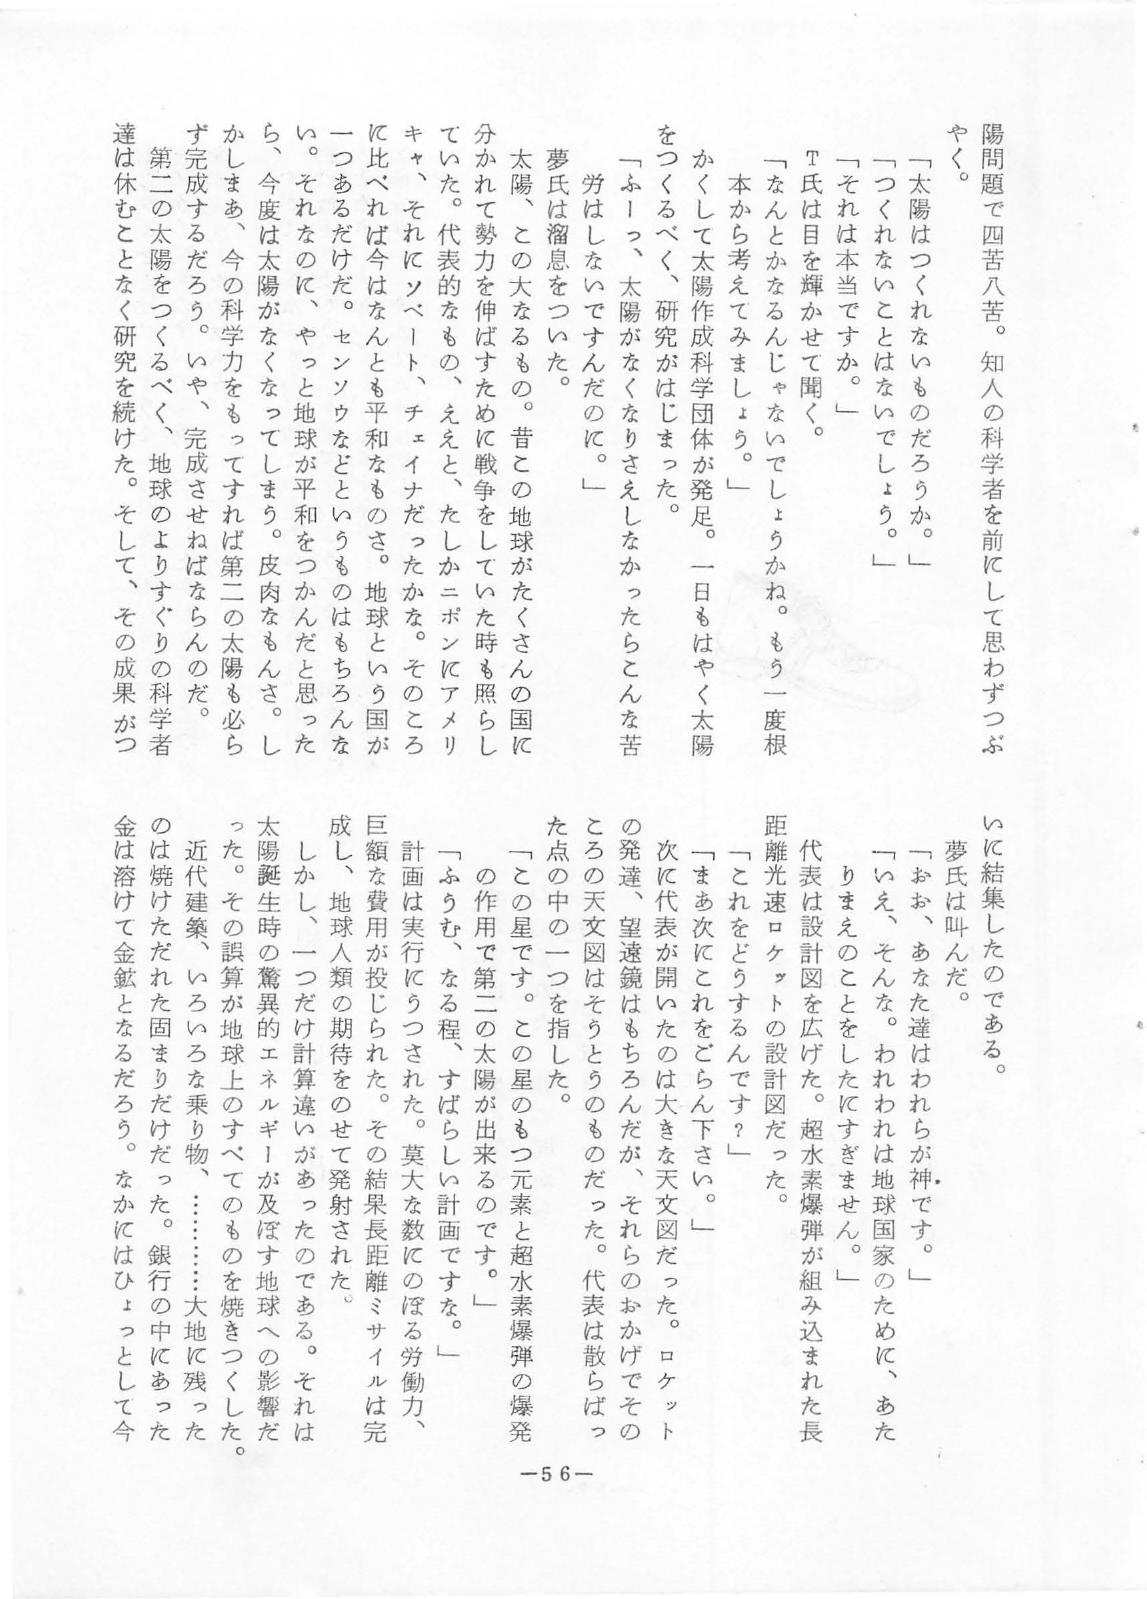 陽問題で四苦八苦。知人の科学者を前にして思わずつぶ
やく。
「太陽はつくれないものだろうか。」
「つくれないことはないでしょう。」
「それは本当ですか。」
T氏は目を輝かせて聞く。
「なんとかなるんじゃないでしょうかね。もう一度根
本から考えてみましょう。」
かくして太陽作成科学団体が発足。一日もはやく太陽
をつくるべく、研究がはじまった。
「ふーっ、太陽がなくなりさえしなかったらこんな苦
労はしないですんだのに。」
夢氏は溜息をついた。
太陽、この大なるもの。昔この地球がたくさんの国に
分かれて勢力を伸ばすために戦争をしていた時も照らし
ていた。代表的なもの、ええと、たしかニポンにアメリ
キャ、それにソベート、チェイナだったかな。そのころ
に比べれば今はなんとも平和なものさ。地球という国が
一つあるだけだ。センソウなどというものはもちろんな
い。それなのに、やっと地球が平和をつかんだと思った
ら、今度は太陽がなくなってしまう。皮肉なもんさ。し
かしまあ、今の科学力をもってすれば第二の太陽も必ら
ず完成するだろう。いや、完成させねばならんのだ。
第二の太陽をつくるべく、地球のよりすぐりの科学者
達は休むことなく研究を続けた。そして、その成果がつ
いに結集したのである。
夢氏は叫んだ。
「おお、あなた達はわれらが神です。」
「いえ、そんな。われわれは地球国家のために、あた
りまえのことをしたにすぎません。」
代表は設計図を広げた。超水素爆弾が組み込まれた長
距離光速ロケットの設計図だった。
「これをどうするんです?」
「まあ次にこれをごらん下さい。」
次に代表が開いたのは大きな天文図だった。ロケット
の発達、望遠鏡はもちろんだが、それらのおかげでその
ころの天文図はそうとうのものだった。代表は散らばっ
た点の中の一つを指した。
「この星です。この星のもつ元素と超水素爆弾の爆発
の作用で第二の太陽が出来るのです。」
「ふうむ、なる程、すばらしい計画ですな。」
計画は実行にうつされた。莫大な数にのぼる労働力、
巨額な費用が投じられた。その結果長距離ミサイルは完
成し、地球人類の期待をのせて発射された。
しかし、一つだけ計算違いがあったのである。それは
太陽誕生時の驚異的エネルギーが及ぼす地球への影響だ
った。その誤算が地球上のすべてのものを焼きつくした。
近代建築、いろいろな乗り物、…………大地に残った
のは焼けただれた固まりだけだった。銀行の中にあった
金は溶けて金鉱となるだろう。なかにはひょっとして今
—56—